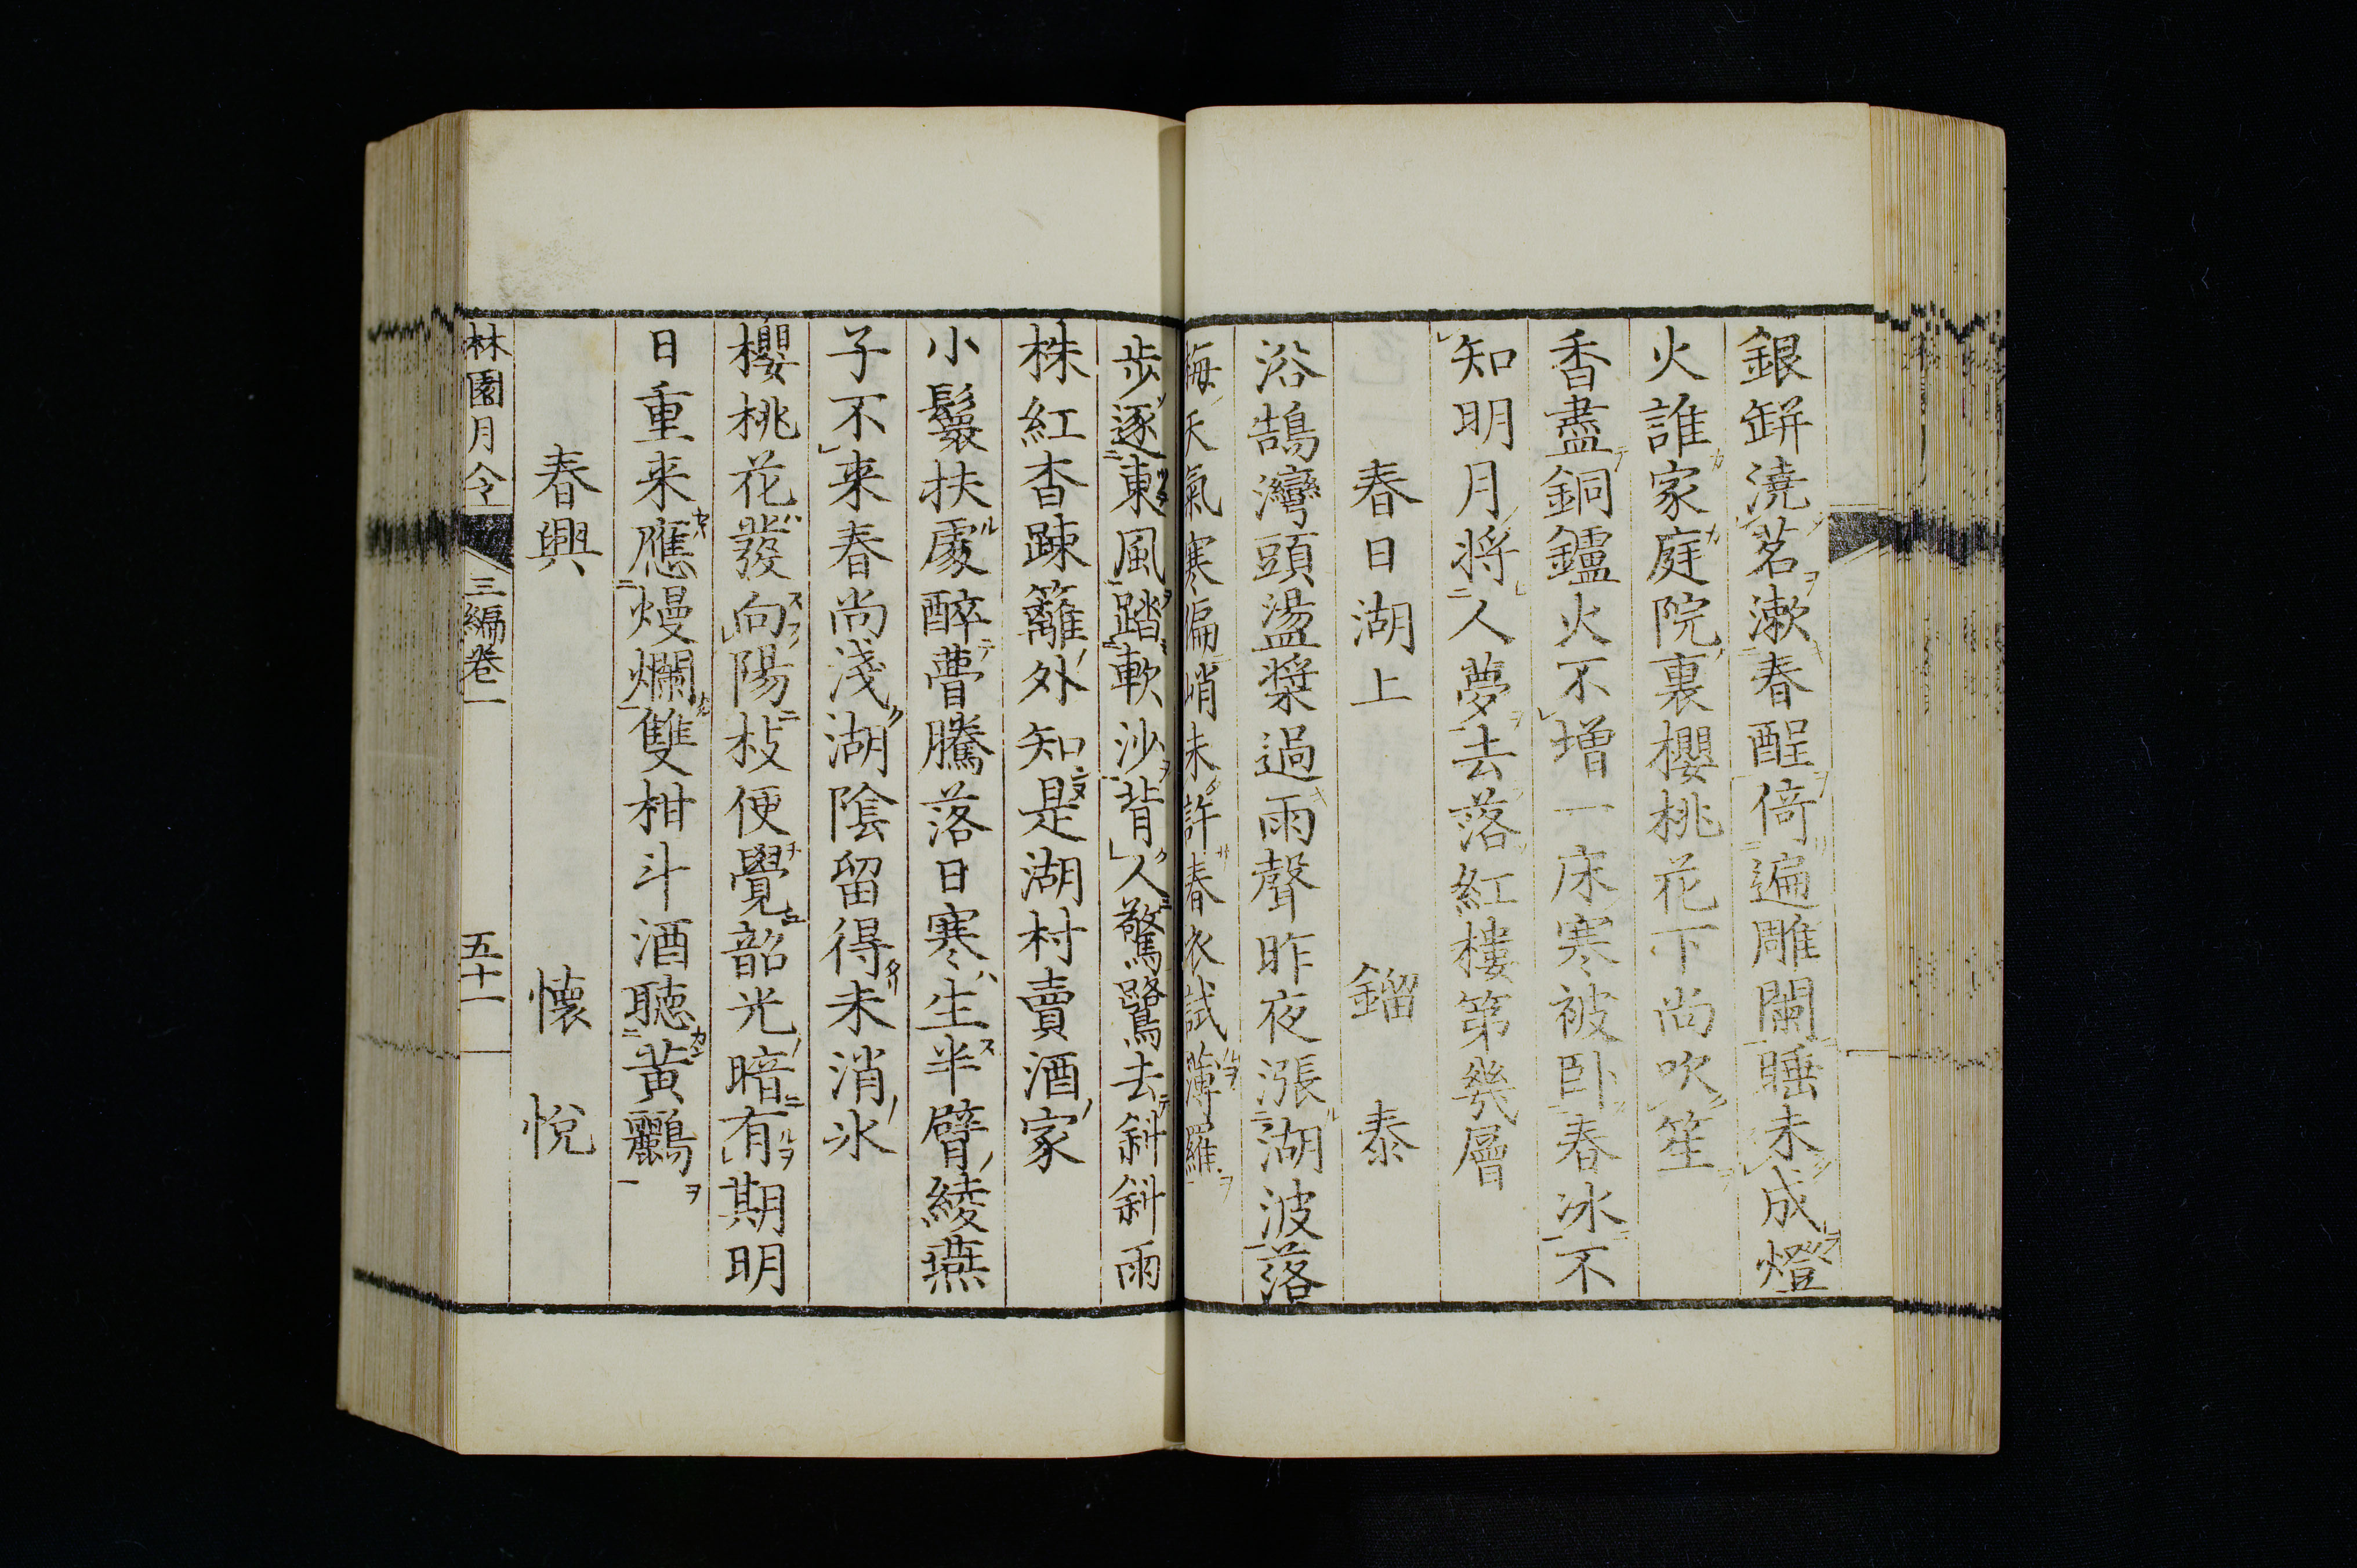 銀缾澆茗漱春酲倚遍雕闌睡未成燈
火誰家庭院裏櫻桃花下尚吹笙
香盡銅鑪火不增一床寒被臥春冰不
知明月將人夢去落紅樓第幾層
春日湖上 鎦泰
浴鵠灣頭盪槳過雨聲昨夜漲湖波落
梅天氣寒偏峭未許春衣試薄羅
步逐東風踏軟沙背人驚鷺去斜斜雨
株紅杏疎籬外知是湖村賣酒家
小鬟扶處醉瞢騰落日寒生半臂綾燕
子不来春尚淺湖陰留得未消氷
櫻桃花發向陽枝便覺韶光暗有期明
日重来應熳爛雙柑斗酒聴黃鸝
春興 懷悅
林園月令 三編卷一 五十一